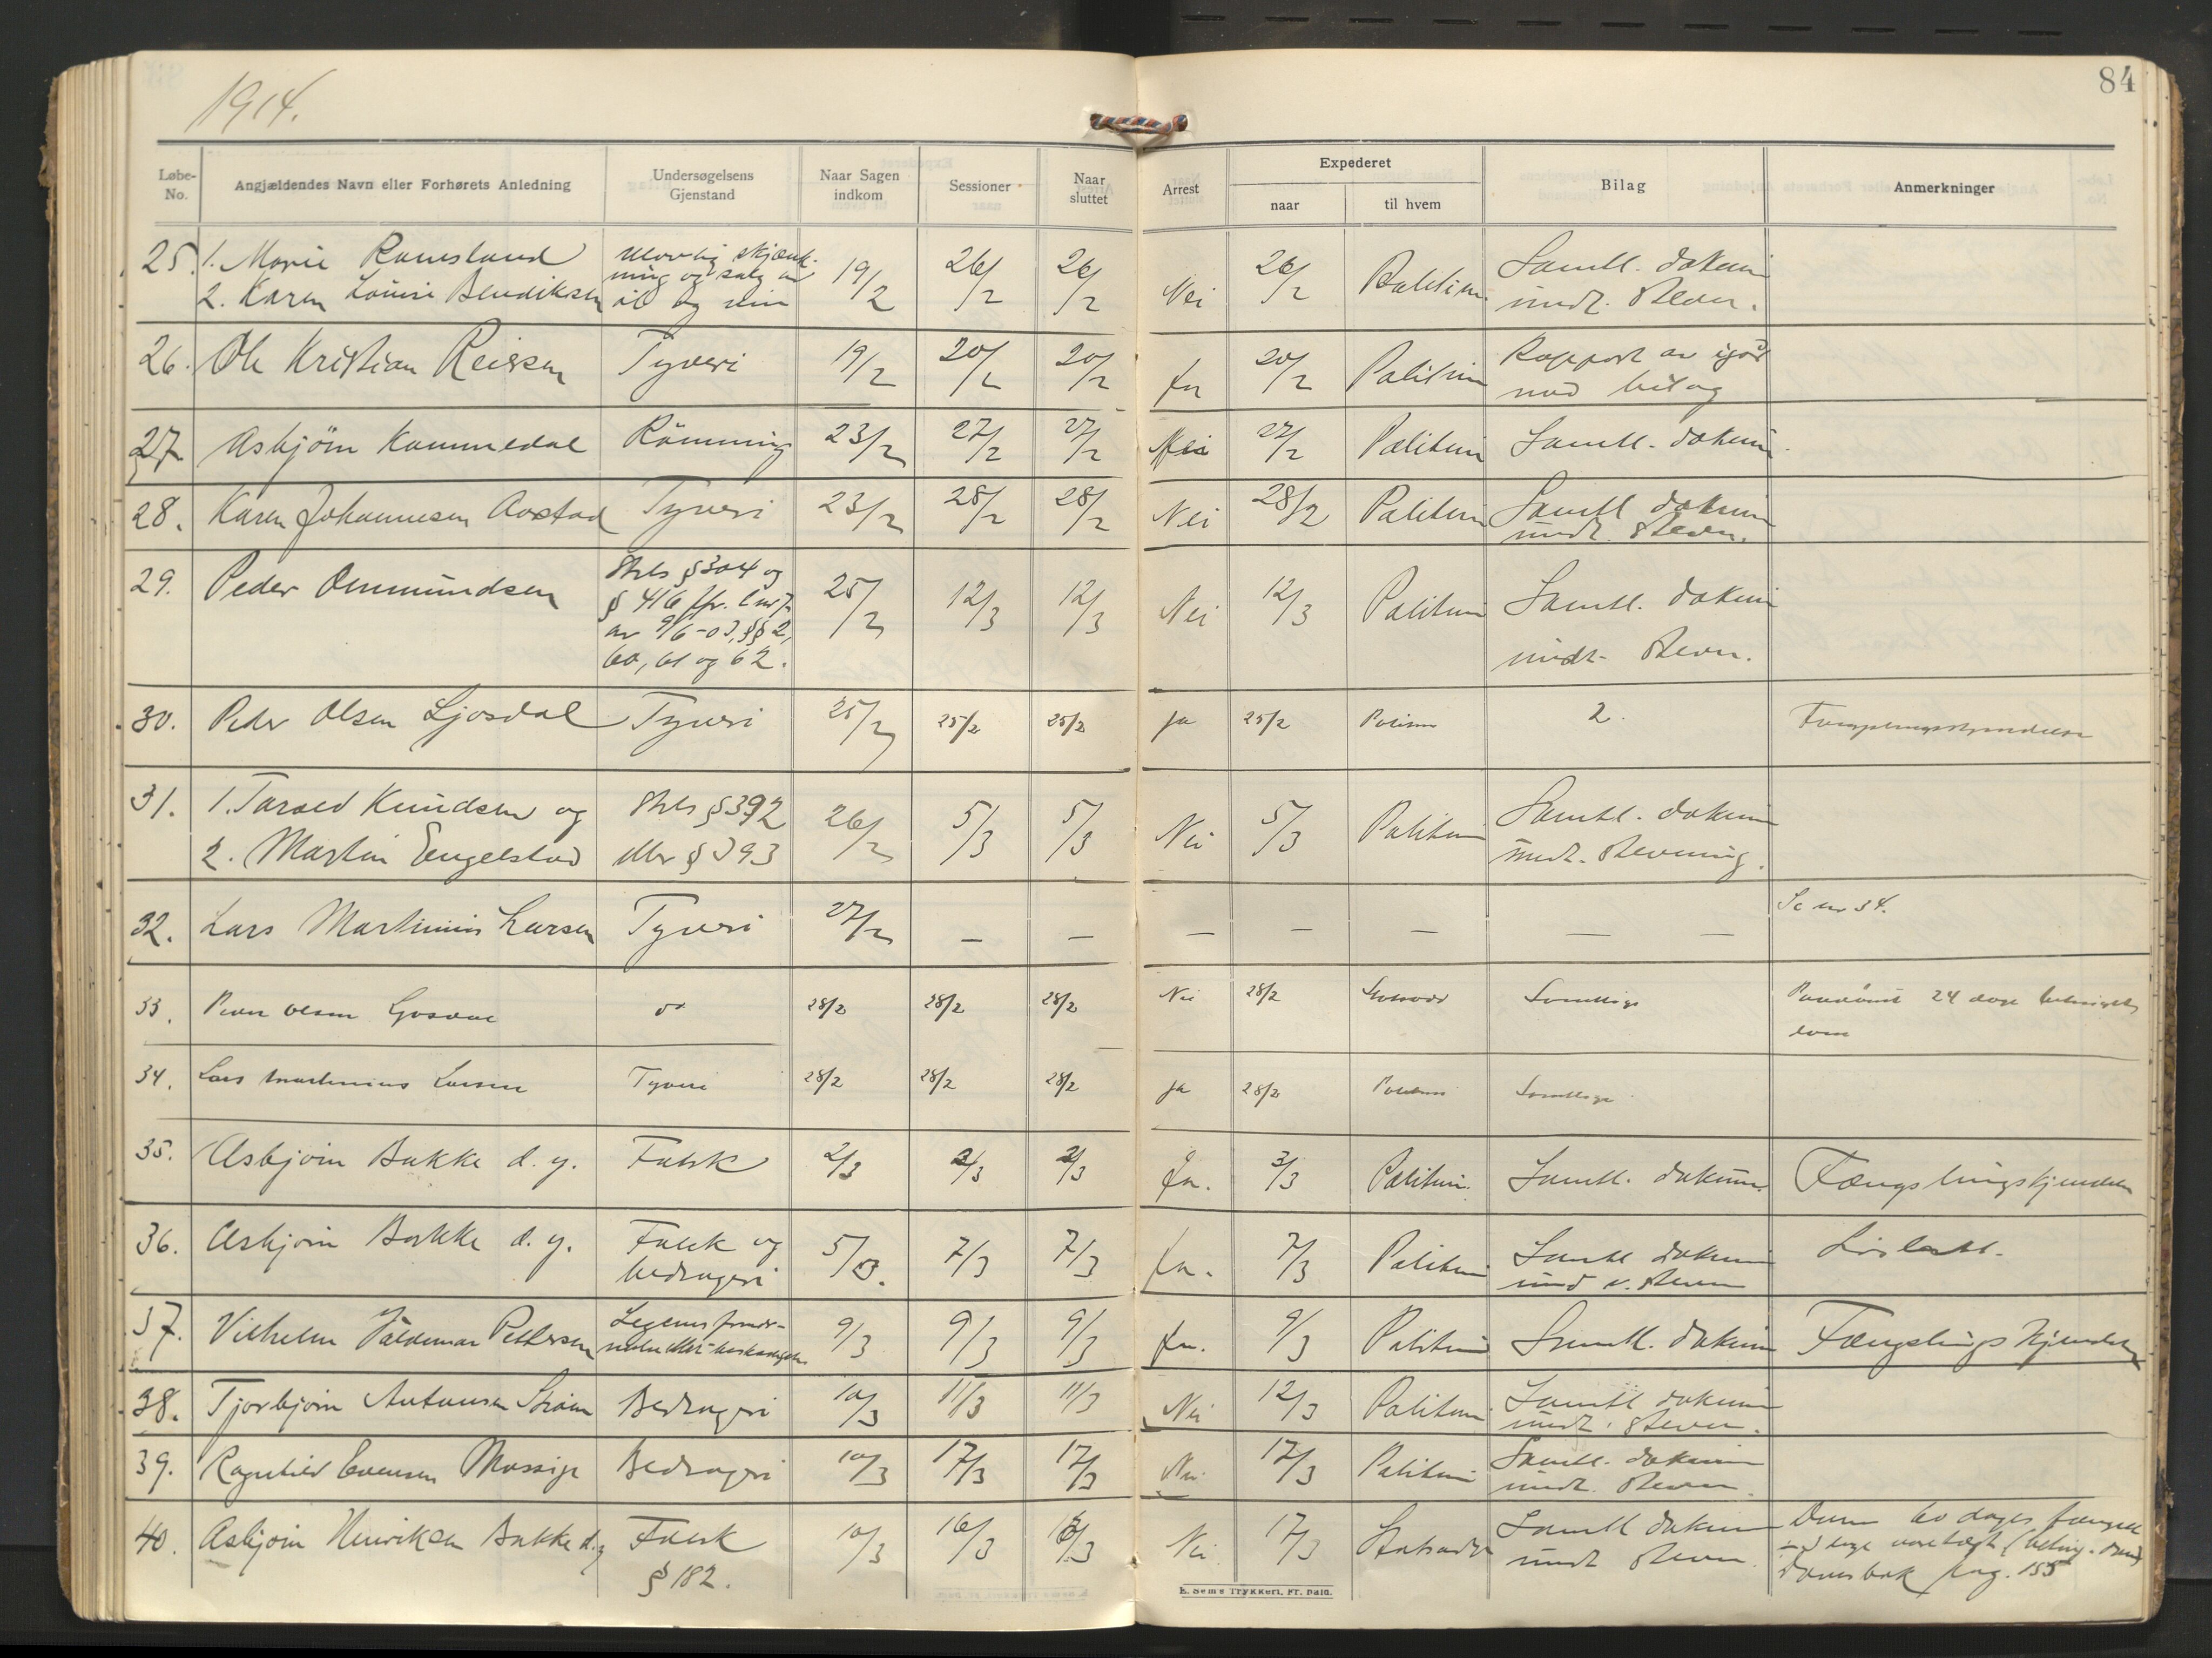 1914.
84
Løbe-No.
Angjældendes Navn eller Forhørets Anledning
Undersøgelsens Gjenstand
Naar Sagen indkom
Sessioner
Naar sluttet
Arrest
Expederet
naar
til hvem
Bilag
Anmerkninger
25. 1. Marie Ramsland ulovlig skjænk- 19/2 26/2 26/2 Nei 26/2 Politim. Samtl. dokum
2. Karen Louise Bendiksen ning og salg av øl og vin indt. stevn.
26. Ole Kristian Reiersen Tyveri 19/2 20/2 20/2 Ja 20/2 Politim Rapport av igår
med bilag
27. Asbjörn Kammedal Römming 23/2 27/2 27/2 Nei 27/2 Politim Samtl. dokum
28. Karen Johannesen Aastad Tyveri 23/2 28/2 28/2 Nei 28/2 Politim Samtl dokum
indt. stevn.
29. Peder Ommundsen Strls § 304 og 25/2 12/3 12/3 Nei 12/3 Politim Samtl. dokum
§ 416 jfr. lov
av 9/6-03, §§ 2, indt. stevn.
60, 61 og 62.
30. Peder Olsen Ljosdal Tyveri 25/2 25/2 25/2 Ja 25/2 Politim 2. Fængslingskjendelse
31. 1. Tarald Knudsen og Strls § 392 26/2 5/3 5/3 Nei 5/3 Politim Samtl. dokum
2. Martin Engelstad eller § 393 indt. stevning.
32. Lars Martinius Larsen Tyveri 27/2 — — — — — — — Se nr 34.
33. Peder Olsen Ljosdal do 28/2 28/2 28/2 Nei 28/2 Statsadv Samtlige Paadömt 24 dage betinget
dom
34. Lars Martinius Larsen Tyveri 28/2 28/2 28/2 Ja 28/2 Politim Samtlige
35. Asbjörn Bakke d. y. Falsk 2/3 3/3 3/3 Ja. 3/3 Politim. Samtl. dokum. Fængslingskjendelse
36. Asbjörn Bakke d. y. Falsk og 5/3. 7/3 7/3 Ja. 7/3 Politim Samtl dokum Löslatt.
bedrageri
37. Vilhelm Valdemar Pettersen Legems 9/3 9/3 9/3 Ja. 9/3 Politim Samtl. dokum Fængslingskjendelse
38. Tjorbjörn Antonsen Ström Bedrageri 10/3 11/3 11/3 Nei 12/3 Politim Samtl dokum
indt. stevn.
39. Ragnhild Evensen Mossige Bedrageri 10/3 17/3 17/3 Nei 17/3 Politim Samtl. dokum
indt. stevn.
40. Asbjörn Henriksen Bakke d.y Falsk 10/3 16/3 16/3 Nei 17/3 Statsadv Samtl dokum Dom 60 dages fængsel
§ 182. indt stevn.
Domsbok pag. 155
E. Sem's Trykkeri, Fr. Hald.